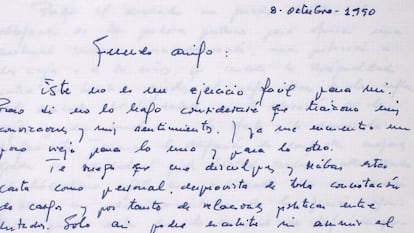 8. octubre - 1990
Querido amigo:
Este no es un ejercicio fácil para mí.
Pero si no lo hago consideraré que traiciono mis
convicciones y mis sentimientos. Y ya me encuentro un
poco viejo para lo uno y para lo otro.
Te ruego que me disculpes y recibas esta
carta como personal, desprovista de toda connotación
de cargos y por tanto de relaciones políticas entre
Solo así podré escribirte sin asumir el